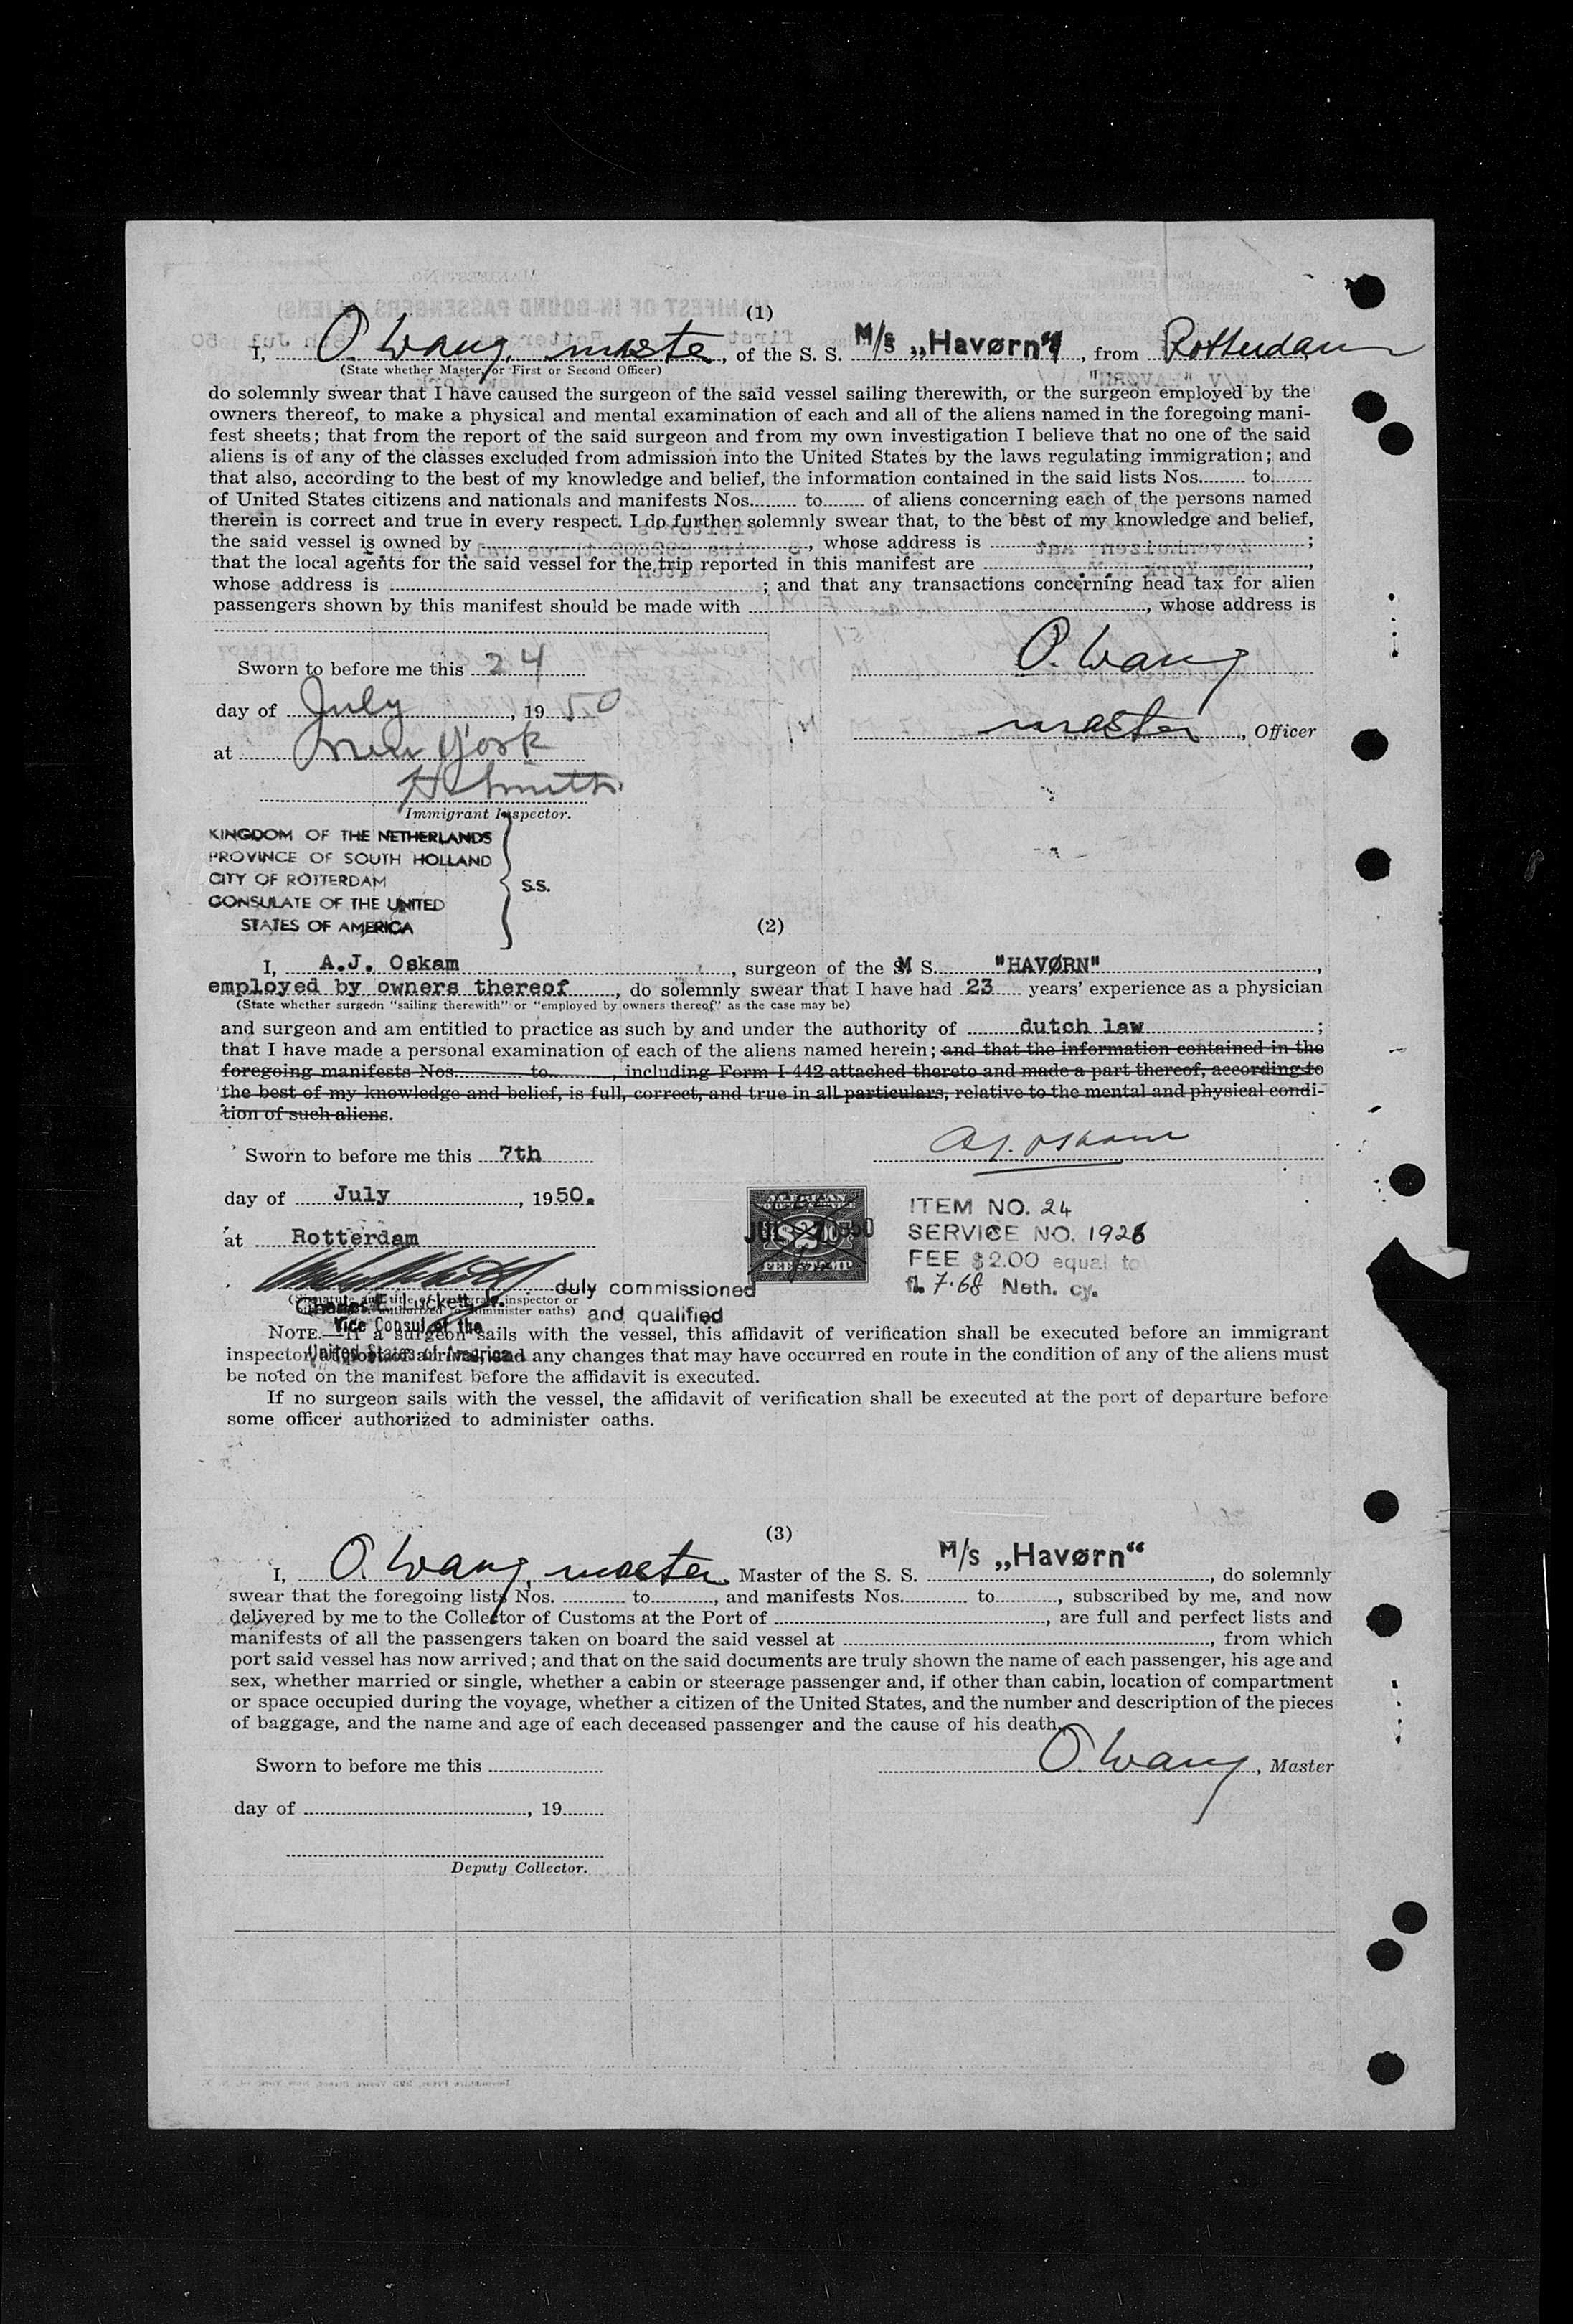 (1)
I, O. Wang, master, of the S. S. M/s „Havørn“, from Rotterdam
(State whether Master, or First or Second Officer)
do solemnly swear that I have caused the surgeon of the said vessel sailing therewith, or the surgeon employed by the
owners thereof, to make a physical and mental examination of each and all of the aliens named in the foregoing mani-
fest sheets; that from the report of the said surgeon and from my own investigation I believe that no one of the said
aliens is of any of the classes excluded from admission into the United States by the laws regulating immigration; and
that also, according to the best of my knowledge and belief, the information contained in the said lists Nos......... to........
of United States citizens and nationals and manifests Nos......... to........ of aliens concerning each of the persons named
therein is correct and true in every respect. I do further solemnly swear that, to the best of my knowledge and belief,
the said vessel is owned by ........, whose address is ........;
that the local agents for the said vessel for the trip reported in this manifest are ........,
whose address is ........; and that any transactions concerning head tax for alien
passengers shown by this manifest should be made with ........, whose address is
Sworn to before me this 24
O. Wang
day of July, 1950
master, Officer
at New York
H Smith
Immigrant Inspector.
KINGDOM OF THE NETHERLANDS
PROVINCE OF SOUTH HOLLAND
CITY OF ROTTERDAM
S.S.
CONSULATE OF THE UNITED
STATES OF AMERICA
(2)
I, A.J. Oskam, surgeon of the M S. "HAVØRN",
employed by owners thereof, do solemnly swear that I have had 23 years' experience as a physician
(State whether surgeon "sailing therewith" or "employed by owners thereof" as the case may be)
and surgeon and am entitled to practice as such by and under the authority of dutch law;
that I have made a personal examination of each of the aliens named herein; and that the information contained in the
foregoing manifests Nos......... to........, including Form I-442 attached thereto and made a part thereof, according to
the best of my knowledge and belief, is full, correct, and true in all particulars, relative to the mental and physical condi-
tion of such aliens.
A.J. Oskam
Sworn to before me this 7th
day of July, 1950.
at Rotterdam
AMERICAN
JUL - 7 1950
$2.00
FEE STAMP
ITEM NO. 24
SERVICE NO. 1926
FEE $2.00 equal to
fl. 7.68 Neth. cy.
duly commissioned
(Signature and title of immigrant inspector or
officer authorized to administer oaths)
Charles E. Luckett, Jr.
and qualified
Vice Consul of the
United States of America
NOTE.—If a surgeon sails with the vessel, this affidavit of verification shall be executed before an immigrant
inspector at port of arrival, and any changes that may have occurred en route in the condition of any of the aliens must
be noted on the manifest before the affidavit is executed.
If no surgeon sails with the vessel, the affidavit of verification shall be executed at the port of departure before
some officer authorized to administer oaths.
(3)
I, O. Wang, master Master of the S. S. M/s „Havørn“, do solemnly
swear that the foregoing lists Nos. ........ to........, and manifests Nos......... to........, subscribed by me, and now
delivered by me to the Collector of Customs at the Port of ........, are full and perfect lists and
manifests of all the passengers taken on board the said vessel at ........, from which
port said vessel has now arrived; and that on the said documents are truly shown the name of each passenger, his age and
sex, whether married or single, whether a cabin or steerage passenger and, if other than cabin, location of compartment
or space occupied during the voyage, whether a citizen of the United States, and the number and description of the pieces
of baggage, and the name and age of each deceased passenger and the cause of his death.
Sworn to before me this ........
O. Wang, Master
day of ........, 19........
Deputy Collector.